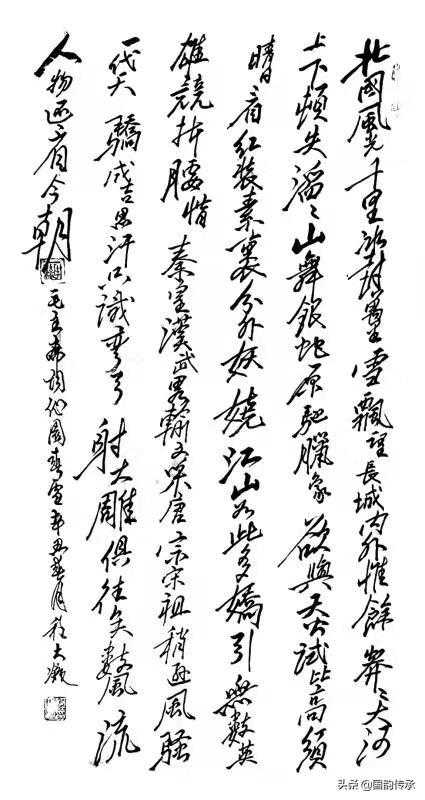 北國風光千里冰封萬里雪飄望長城内外惟餘莽々大河
上下頓失滔々山舞銀蛇原馳臘象欲與天公試比高須
晴日看紅裝素裹分外妖嬈江山如此多嬌引無數英
雄競折腰惜秦皇漢武略輸文采唐宗宋祖稍遜風騷
一代天驕成吉思汗只識彎弓射大雕俱往矣數風流
人物還看今朝
毛主席詞沁園春雪辛丑月程大
头条 @国韵传承